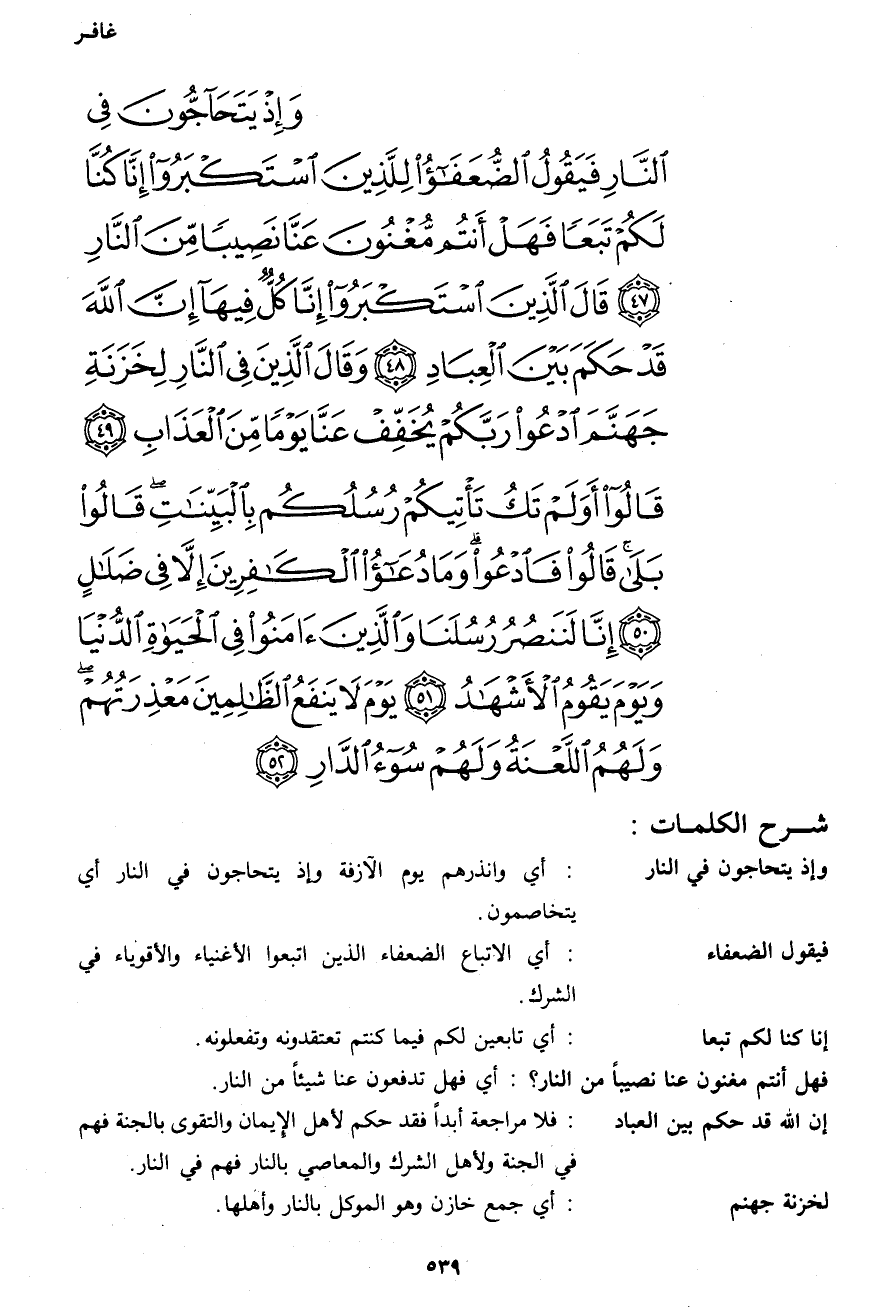 غافـر
وَإِذْ يَتَحَآجُّونَ فِى
ٱلنَّارِ فَيَقُولُ ٱلضُّعَفَـٰٓؤُا۟ لِلَّذِينَ ٱسْتَكْبَرُوٓا۟ إِنَّا كُنَّا
لَكُمْ تَبَعًا فَهَلْ أَنتُم مُّغْنُونَ عَنَّا نَصِيبًا مِّنَ ٱلنَّارِ
﴿٤٧﴾ قَالَ ٱلَّذِينَ ٱسْتَكْبَرُوٓا۟ إِنَّا كُلٌّ فِيهَآ إِنَّ ٱللَّهَ
قَدْ حَكَمَ بَيْنَ ٱلْعِبَادِ ﴿٤٨﴾ وَقَالَ ٱلَّذِينَ فِى ٱلنَّارِ لِخَزَنَةِ
جَهَنَّمَ ٱدْعُوا۟ رَبَّكُمْ يُخَفِّفْ عَنَّا يَوْمًا مِّنَ ٱلْعَذَابِ ﴿٤٩﴾
قَالُوٓا۟ أَوَلَمْ تَكُ تَأْتِيكُمْ رُسُلُكُم بِٱلْبَيِّنَـٰتِ ۖ قَالُوا۟
بَلَىٰ ۚ قَالُوا۟ فَٱدْعُوا۟ ۗ وَمَا دُعَـٰٓؤُا۟ ٱلْكَـٰفِرِينَ إِلَّا فِى ضَلَـٰلٍ
﴿٥٠﴾ إِنَّا لَنَنصُرُ رُسُلَنَا وَٱلَّذِينَ ءَامَنُوا۟ فِى ٱلْحَيَوٰةِ ٱلدُّنْيَا
وَيَوْمَ يَقُومُ ٱلْأَشْهَـٰدُ ﴿٥١﴾ يَوْمَ لَا يَنفَعُ ٱلظَّـٰلِمِينَ مَعْذِرَتُهُمْ ۖ
وَلَهُمُ ٱللَّعْنَةُ وَلَهُمْ سُوٓءُ ٱلدَّارِ ﴿٥٢﴾
شـــرح الكلمـات :
وإذ يتحاجون في النار : أي وانذرهم يوم الآزفة وإذ يتحاجون في النار أي
يتخاصمون.
فيقول الضعفاء : أي الاتباع الضعفاء الذين اتبعوا الأغنياء والأقوياء في
الشرك.
إنا كنا لكم تبعا : أي تابعين لكم فيما كنتم تعتقدونه وتفعلونه.
فهل أنتم مغنون عنا نصيباً من النار؟ : أي فهل تدفعون عنا شيئاً من النار.
إن الله قد حكم بين العباد : فلا مراجعة أبداً فقد حكم لأهل الإيمان والتقوى بالجنة فهم
في الجنة ولأهل الشرك والمعاصي بالنار فهم في النار.
لخزنة جهنم : أي جمع خازن وهو الموكل بالنار وأهلها.
٥٣٩